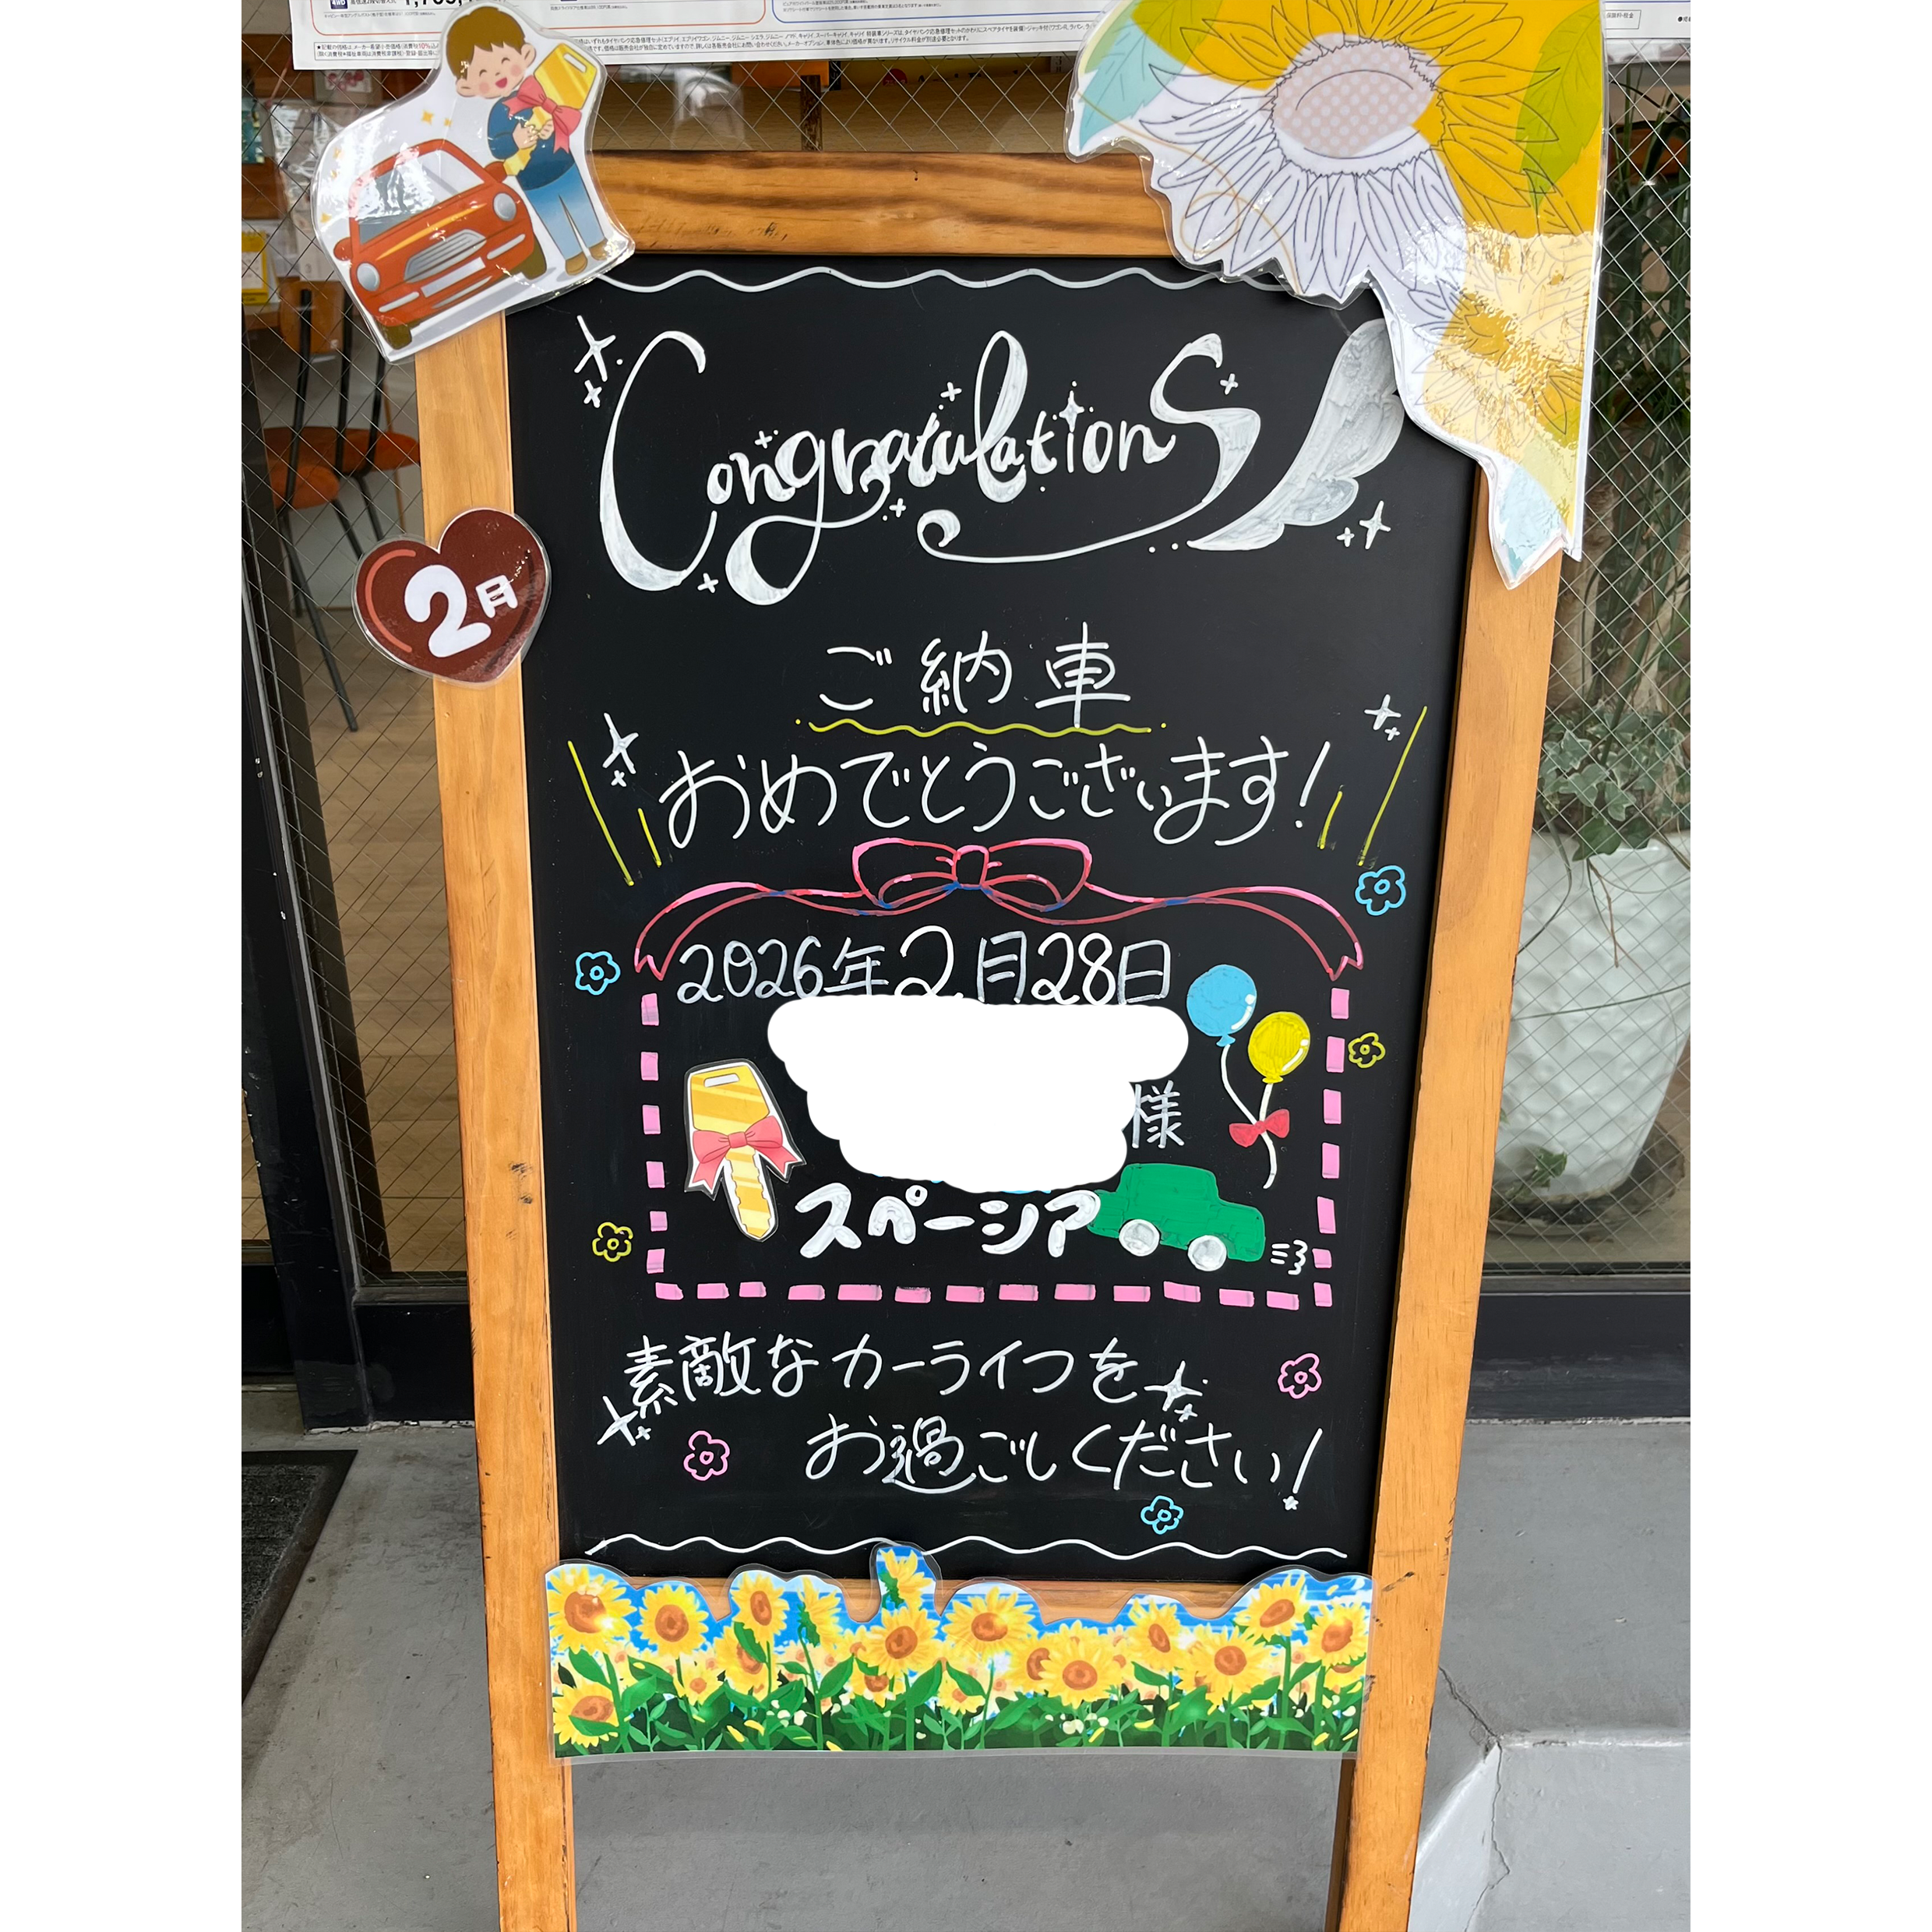 Congratulations
2月
ご納車
おめでとうございます!
2026年2月28日
様
スペーシア
素敵なカーライフを
お過ごしください!